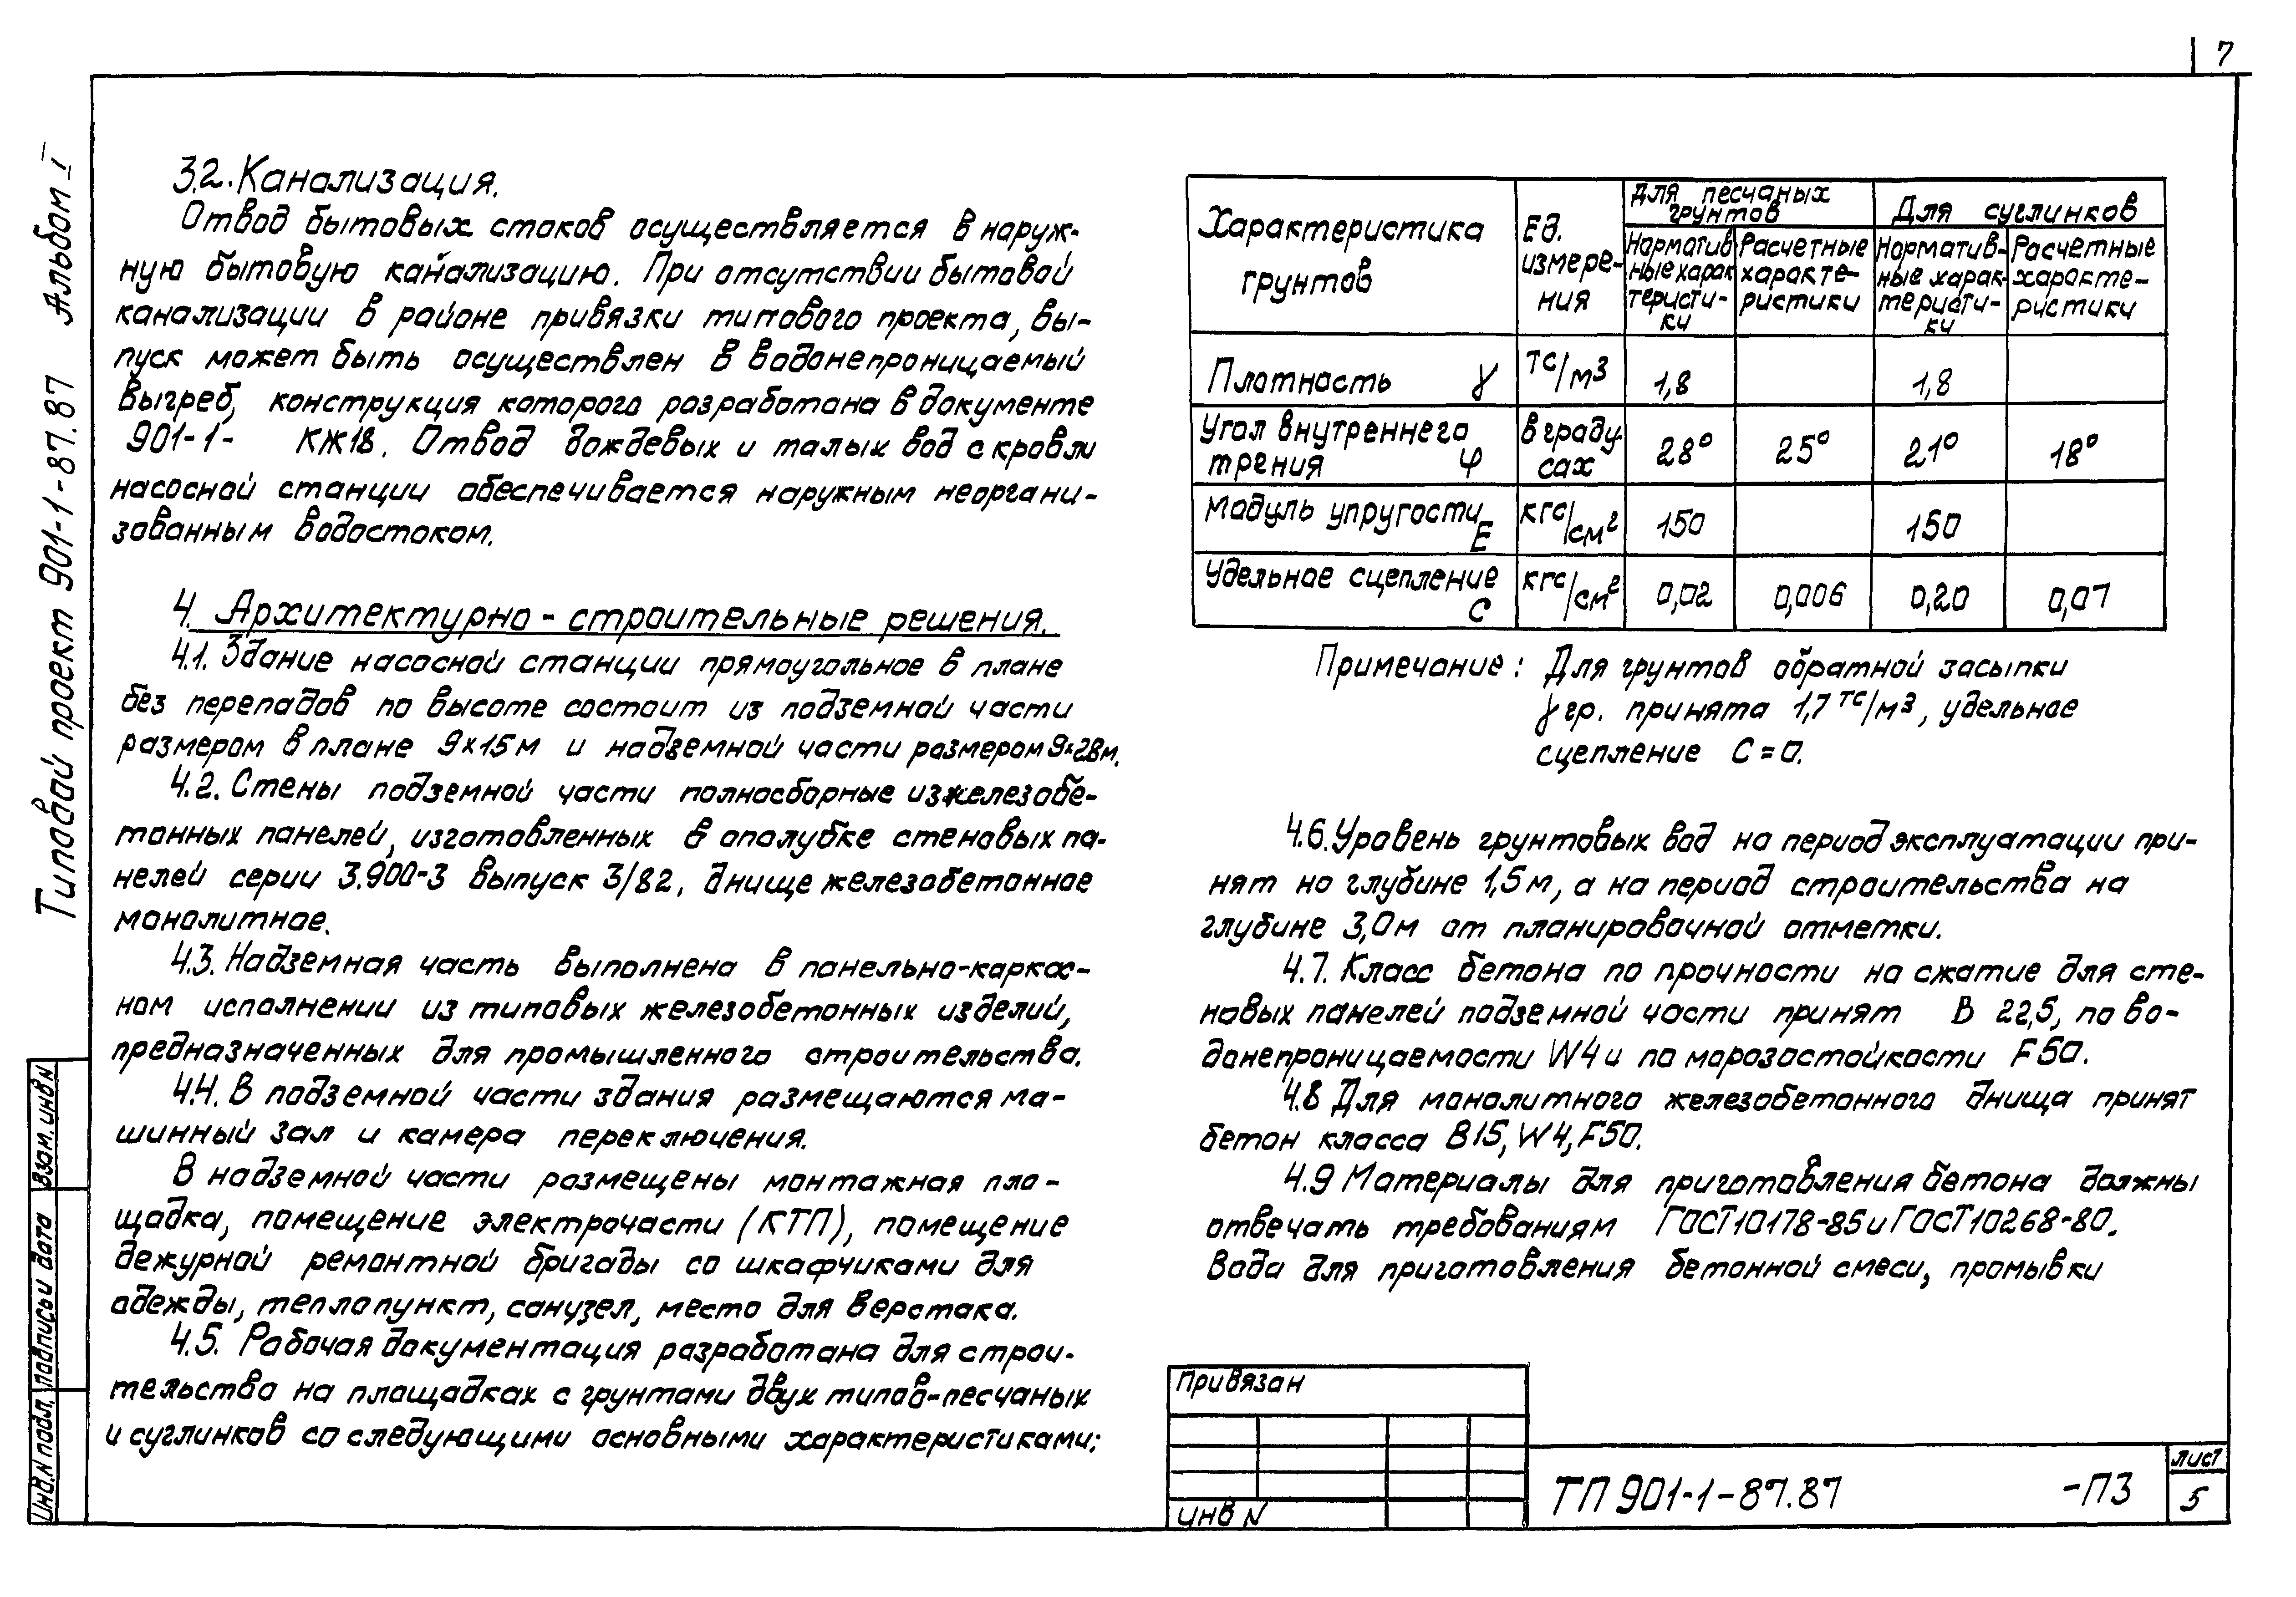 7
Типовой проект 901-1-87.87 Альбом I
3.2. Канализация.
Отвод бытовых стоков осуществляется в наруж-
ную бытовую канализацию. При отсутствии бытовой
канализации в районе привязки типового проекта, вы-
пуск может быть осуществлен в водонепроницаемый
выгреб, конструкция которого разработана в документе
901-1- КЖ18. Отвод дождевых и талых вод с кровли
насосной станции обеспечивается наружным неоргани-
зованным водостоком.
4. Архитектурно-строительные решения.
4.1. Здание насосной станции прямоугольное в плане
без перепадов по высоте состоит из подземной части
размером в плане 9х15м и надземной части размером 9х28м.
4.2. Стены подземной части полносборные из железобе-
тонных панелей, изготовленных в опалубке стеновых па-
нелей серии 3.900-3 выпуск 3/82, днище железобетонное
монолитное.
4.3. Надземная часть выполнена в панельно-каркас-
ном исполнении из типовых железобетонных изделий,
предназначенных для промышленного строительства.
4.4. В подземной части здания размещаются ма-
шинный зал и камера переключения.
В надземной части размещены монтажная пло-
щадка, помещение электрочасти (КТП), помещение
дежурной ремонтной бригады со шкафчиками для
одежды, теплопункт, санузел, место для верстака.
4.5. Рабочая документация разработана для строи-
тельства на площадках с грунтами двух типов-песчаных
и суглинков со следующими основными характеристиками:
Характеристика грунтов | Ед. измере-ния | Для песчаных грунтов | Для суглинков
Норматив-ные харак-теристи-ки | Расчетные характе-ристики | Норматив-ные харак-теристи-ки | Расчетные характе-ристики
Плотность γ | тс/м3 | 1,8 | | 1,8 |
Угол внутреннего трения φ | в граду-сах | 28° | 25° | 21° | 18°
Модуль упругости E | кгс/см2 | 150 | | 150 |
Удельное сцепление C | кгс/см2 | 0,02 | 0,006 | 0,20 | 0,07
Примечание: Для грунтов обратной засыпки
γгр. принята 1,7 тс/м3, удельное
сцепление C=0.
4.6. Уровень грунтовых вод на период эксплуатации при-
нят на глубине 1,5м, а на период строительства на
глубине 3,0м от планировочной отметки.
4.7. Класс бетона по прочности на сжатие для сте-
новых панелей подземной части принят В 22,5, по во-
донепроницаемости W4 и по морозостойкости F50.
4.8 Для монолитного железобетонного днища принят
бетон класса В15, W4, F50.
4.9 Материалы для приготовления бетона должны
отвечать требованиям ГОСТ10178-85 и ГОСТ10268-80.
Вода для приготовления бетонной смеси, промывки
Привязан
Инв N
ТП 901-1-87.87 -ПЗ
лист
5
Взам. инв N
Подпись и дата
Инв. N подл.